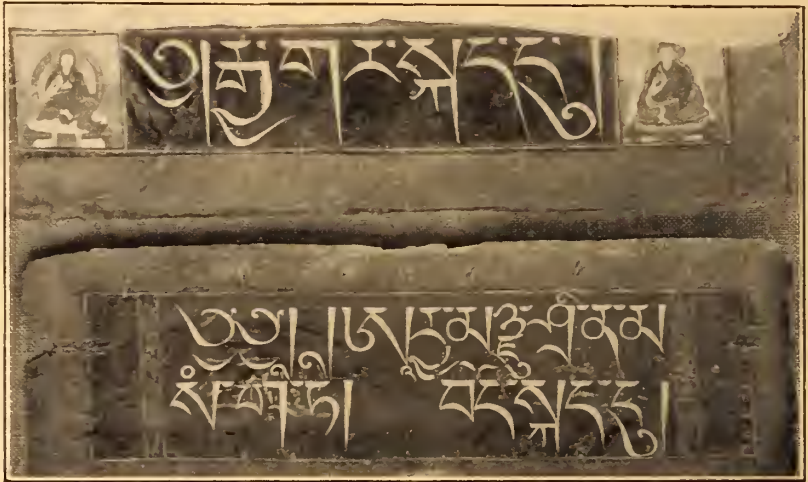 ༄། རྒྱ་གར་སྐད་དུ།
༄༅། །ཨཱརྱ་མཉྫུ་ཤྲཱི་ནཱ་མ
སཾ་གཱི་ཏི། བོད་སྐད་དུ།